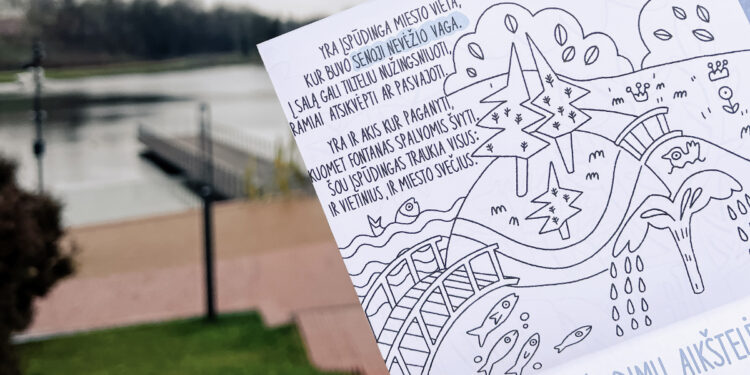 YRA ĮSPŪDINGA MIESTO VIETA,
KUR BUVO SENOJI NEVĖŽIO VAGA.
Į SALĄ GALI TILTELIU NUŽINGSNIUOTI,
RAMIAI ATSIKVĖPTI AR PASVAJOTI.
YRA IR AKIS KUR PAGANYTI,
KUOMET FONTANAS SPALVOMIS ŠVYTI,
ŠOU ĮSPŪDINGAS TRAUKIA VISUS:
IR VIETINIUS, IR MIESTO SVEČIUS